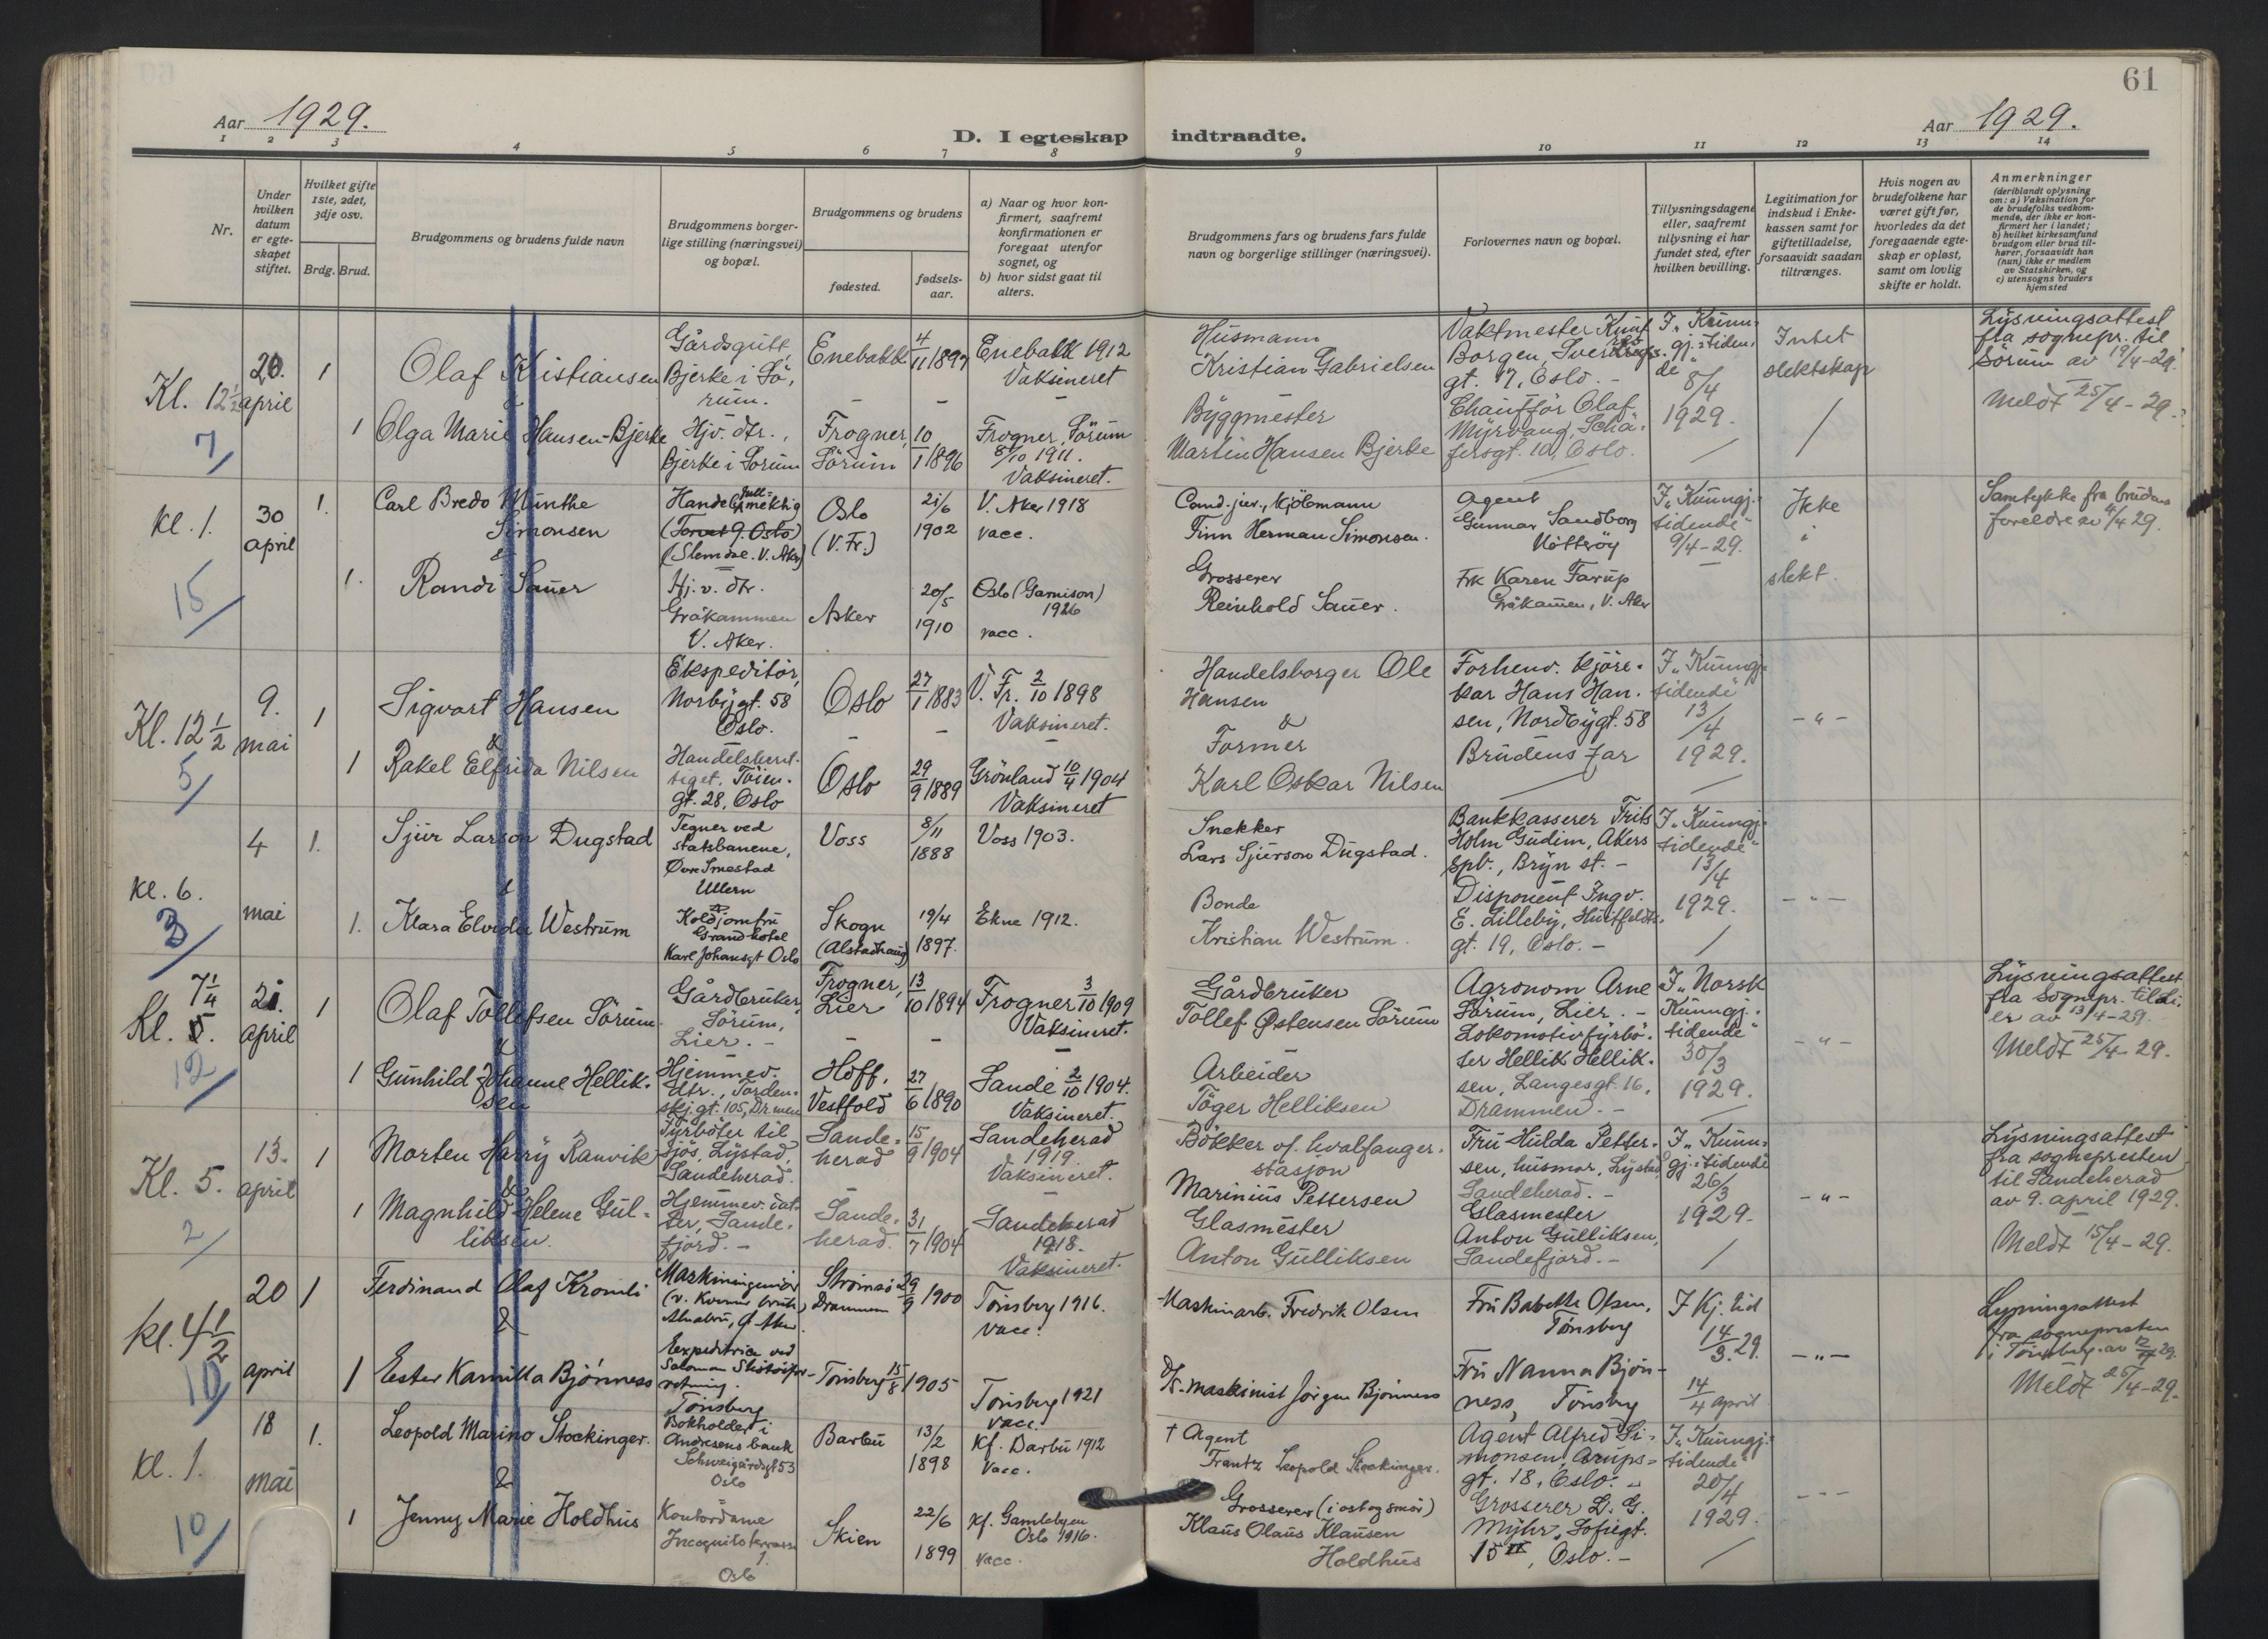 61
Aar 1929.
D. I egteskap indtraadte.
Aar 1929.
1 2 3 4 5 6 7 8 9 10 11 12 13 14
Nr.
Under hvilken datum er egteskapet stiftet.
Hvilket gifte 1ste, 2det, 3dje osv.
Brdg. Brud.
Brudgommens og brudens fulde navn
Brudgommens borgerlige stilling (næringsvei) og bopæl.
Brudgommens og brudens
fødested.
fødselsaar.
a) Naar og hvor konfirmert, saafremt konfirmationen er foregaat utenfor sognet, og
b) hvor sidst gaat til alters.
Brudgommens fars og brudens fars fulde navn og borgerlige stillinger (næringsvei).
Forlovernes navn og bopæl.
Tillysningsdagene eller, saafremt tillysning ei har fundet sted, efter hvilken bevilling.
Legitimation for indskud i Enkekassen samt for giftetilladelse, forsaavidt saadan tiltrænges.
Hvis nogen av brudefolkene har været gift før, hvorledes da det foregaaende egteskap er opløst, samt om lovlig skifte er holdt.
Anmerkninger
(deriblandt oplysning om: a) Vaksination for de brudefolks vedkommende, der ikke er konfirmert her i landet; b) hvilket kirkesamfund brudgom eller brud tilhører, forsaavidt han (hun) ikke er medlem av Statskirken, og c) utensogns bruders hjemsted
Kl. 12 1/2
7
20. april
1
Olaf Kristiansen
&
Gårdsgutt,
Bjerke i Sö-
rum.
Enebakk
4/11 1897
Enebakk 1912
Vaksineret
Husmann
Kristian Gabrielsen
Vaktmester Knut
Borgen,
gt. 17, Oslo. -
I „Kunn-
gj.-tiden-
de"
8/4
1929.
Intet
slektskap
Lysningsattest
fra sognepr. til
Sörum av 19/4-29.
Meldt 25/4-29.
1
Olga Marie Hansen-Bjerke
Hjv. dtr.,
Bjerke i Sörum
Frogner,
Sörum
10/1 1896
Frogner, Sörum
8/10 1911.
Vaksineret.
Byggmester
Martin Hansen Bjerke
Chaufför Olaf
Myrvang, Schä-
fersgt. 10, Oslo.
kl. 1.
15
30 april
1.
Carl Bredo Munthe
Simonsen
&
Handelsfull-
mektig
(Torvet 9. Oslo)
(Slemdal. V. Aker)
Oslo
(V. Fr.)
21/6
1902
V. Aker 1918
vacc.
Cand. jur., kjöbmann
Finn Herman Simonsen.
Agent
Gunnar Sandborg
Nötteröy
I „Kunngj.-
tidende"
9/4-29.
Ikke
slekt.
Samtykke fra brudens
foreldre av 4/4 29.
1.
Randi Sauer
Hj.v. dtr.
Gråkammen
V. Aker.
Asker
20/5
1910
Oslo (Garnison)
1926
vacc.
Grosserer
Reinhold Sauer.
Frk Karen Farup
Gråkamen, V. Aker
Kl. 12 1/2
5
9. mai
1
Sigvart Hansen
&
Ekspeditör,
Norbygt. 58
Oslo.
Oslo
27/1 1883
V. Fr. 2/10 1898
Vaksineret.
Handelsborger Ole
Hansen
&
Forhenv. kjöre-
kar Hans Han-
sen, Nordbygt. 58
I „Kunngj.-
tidende"
13/4
1929.
- „ -
1
Rakel Elfrida Nilsen
Töien-
gt. 28, Oslo
Oslo
29/9 1889
Grönland 10/4 1904
Vaksineret
Former
Karl Oskar Nilsen
Brudens far
kl. 6.
3
4 mai
1.
Sjur Larson Dugstad
&
Tegner ved
statsbanene,
Övre Smestad
Ullern
Voss
8/11
1888
Voss 1903.
Snekker
Lars Sjurson Dugstad.
Bankkasserer Frits
Holm Gudim, Akers
spb., Bryn st. -
I „Kunngj.-
tidende"
13/4
1929.
- „ -
1.
Klara Elvida Westrum
Koldjomfru
Grand-hotel
Karl Johansgt Oslo
Skogn
(Alstadhaug)
19/4
1897.
Ekne 1912.
Bonde
Kristian Westrum.
Disponent Ingv.
E. Lilleby, Huitfeldts-
gt. 19, Oslo. -
7 1/4
Kl. 5.
12
21. april
1
Olaf Tollefsen Sörum
&
Gårdbruker,
Sörum,
Lier. -
Frogner,
Lier
13/10 1894
Frogner 3/10 1909
Vaksineret.
Gårdbruker
Tollef Østensen Sörum
Agronom Arne
Sörum, Lier. -
I „Norsk
Kunngj.-
tidende"
30/3
1929.
- „ -
Lysningsattest
fra Sognepr. til Li-
er av 13/4-29.
Meldt 25/4-29.
1
Gunhild Johanne Hellik-
sen
Hjemmev.
dtr., Torden-
skj.gt. 105, Drmen
Hoff,
Vestfold
27/6 1890
Sande 2/10 1904.
Vaksineret.
Arbeider
Töger Helliksen
Lokomotivfyrbö-
ter Hellik Hellik-
sen, Langesgt. 16,
Drammen. -
Kl. 5.
2
13. april
1
Morten Harry Ranvik
&
Fyrböter til
sjös, Lystad,
Sandeherad.
Sande-
herad
15/9 1904
Sandeherad
1919.
Vaksineret.
Bökker of. hvalfanger-
stasjon
Marinius Pettersen
Fru Hulda Petter-
sen, husmor, Lystad,
Sandeherad. -
I „Kunn-
gj.-tidende
26/3
1929.
- „ -
Lysningsattest
fra sognepresten
til Sandeherad
av 9. april 1929.
Meldt 15/4-29.
1
Magnhild Helene Gul-
liksen.
Hjemmev. dat-
ter, Sande-
fjord. -
Sande-
herad.
31/7 1904
Sandeherad
1918.
Vaksineret.
Glasmester
Anton Gulliksen
Glasmester
Anton Gulliksen,
Sandefjord. -
kl. 4 1/2
10
20 april
1
Ferdinand Olaf Kromli
&
Maskiningeniör
Strömsö
Drammen
29/9 1900
Tönsberg 1916.
vacc.
Maskinarb. Fredrik Olsen
Fru Babette Olsen,
Tönsberg
I Kj. tid
14/3. 29.
- „ -
Lysningsattest
fra sognepresten
i Tönsberg av
Meldt 25/4-29.
1
Ester Kamilla Bjönness
Expeditrice ved
Tönsberg
Tönsberg
15/8 1905
Tönsberg 1921
vacc.
D/S-maskinist Jörgen Bjönness
Fru Nanna Bjön-
ness, Tönsberg
14/4 april
kl. 1.
10
18 mai
1.
Leopold Marino Stockinger.
&
Bokholder i
Andresens bank
Schweigårdsgt 53
Oslo
Barbu
13/2
1898
Kf. Barbu 1912
Vacc.
† Agent
Frantz Leopold Stockinger.
Agent Alfred Si-
monsen, Arups-
gt. 18, Oslo. -
I „Kunngj.-
tidende"
20/4
1929.
- - -
1
Jenny Marie Holdhus
Kontordame
Incognito terrasse
1.
Oslo
Skien
22/6
1899
Kf. Gamlebyen
Oslo 1916.
vacc.
Grosserer (i ost og smör)
Klaus Olaus Klausen
Holdhus
Grosserer L. G.
Myhr, Sofiegt.
15 IV, Oslo. -